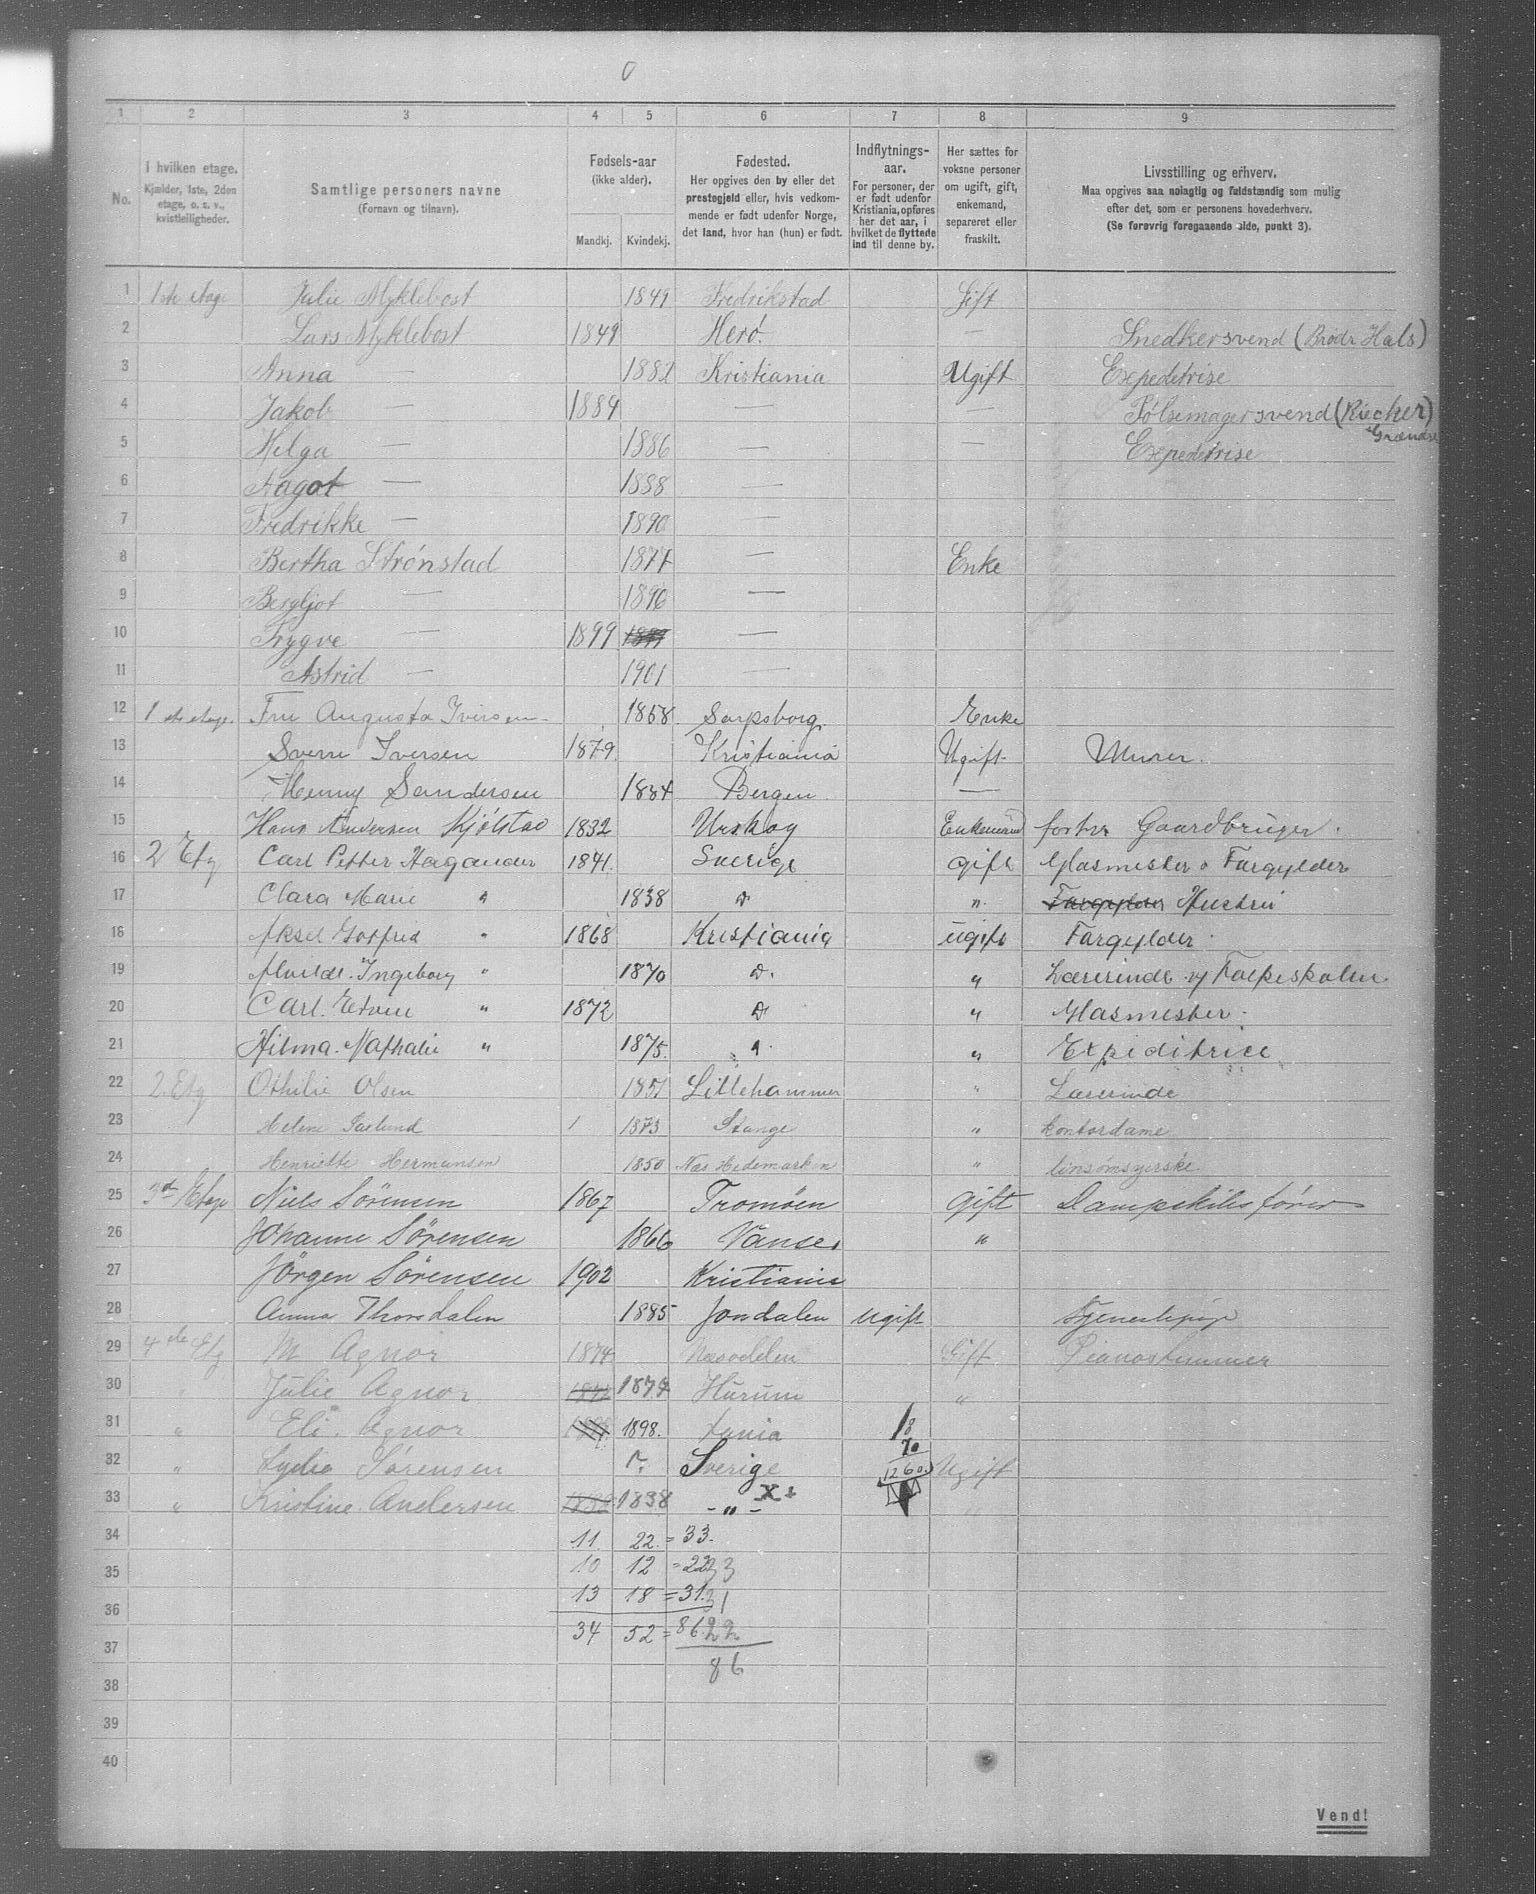 0
1 2 3 4 5 6 7 8 9
No.
I hvilken etage.
Kjælder, 1ste, 2den
etage, o. s. v.,
kvistleiligheder.
Samtlige personers navne
(Fornavn og tilnavn).
Fødsels-aar
(ikke alder).
Mandkj. Kvindekj.
Fødested.
Her opgives den by eller det
prestegjeld eller, hvis vedkom-
mende er født udenfor Norge,
det land, hvor han (hun) er født.
Indflytnings-
aar.
For personer, der
er født udenfor
Kristiania, opføres
her det aar, i
hvilket de flyttede
ind til denne by.
Her sættes for
voksne personer
om ugift, gift,
enkemand,
separeret eller
fraskilt.
Livsstilling og erhverv.
Maa opgives saa nøiagtig og fuldstændig som mulig
efter det, som er personens hovederhverv.
(Se forøvrig foregaaende side, punkt 3).
1 1ste etage Julie Myklebost 1849 Fredrikstad Gift
2 Lars Myklebost 1849 Herø. — Snedkersvend (Brødr Hals)
3 Anna — 1882 Kristiania Ugift Expeditrise
4 Jakob — 1884 — — Pølsemagersvend (Riecher)
Grændsen
5 Helga — 1886 — — Expeditrise
6 Aagot — 1888 —
7 Fredrikke — 1890 —
8 Bertha Strønstad 1877 — Enke
9 Bergljot — 1896 —
10 Trygve — 1899 —
11 Astrid — 1901 —
12 1ste etage. Fru Augusta Iversen 1858 Sarpsborg. Enke
13 Sverre Iversen 1879. Kristiania Ugift. Murer.
14 Henny Sandersen 1884 Bergen. —
15 Hans Andersen Kjølstad 1832 Urskog Enkemand forhv Gaardbruger.
16 2 Etg Carl Petter Hagander 1841. Sverige gift Glasmester o Forgylder
17 Clara Marie " 1838 D " Forgylder Hustru
18 Aksel Gotfred " 1868 Kristiania ugift Forgylder
19 Ingeborg " 1870 D. " Lærerinde v/ Folkeskolen
20 Carl. Edvin " 1872 D " Glasmester.
21 Hilma. Nathalie " 1875. " " Expeditrice
22 2. Etg Othilie Olsen 1851 Lillehammer " Lærerinde
23 Helene 1 1873 Stange " Kontordame
24 Henriette Hermansen 1850 Næs Hedemarken " linsømsyerske.
25 3d Etage Niels Sörensen 1867 Tromöen gift Dampskibsfører
26 Johanne Sörensen 1866 Vanse "
27 Jörgen Sörensen 1902 Kristiania
28 Anna Thorsdalen 1885 Jondalen Ugift tjenestepige
29 4de Etg M Agnor 1874 Næsodden Gift Pianostemmer
30 " Julie Agnor 1872 1874 Hurum "
31 " Eli. Agnor 1898. Xania 18
32 " Lydia Sørensen ?. Sverige 70 1260. Ugift
33 " Kristine Andersen 1838 1838 - " - X "
34 11. 22. = 33.
35 10 12 = 22 33
36 13 18 = 31. 31
37 34 52 = 86. 22
86
38
39
40
Vend!